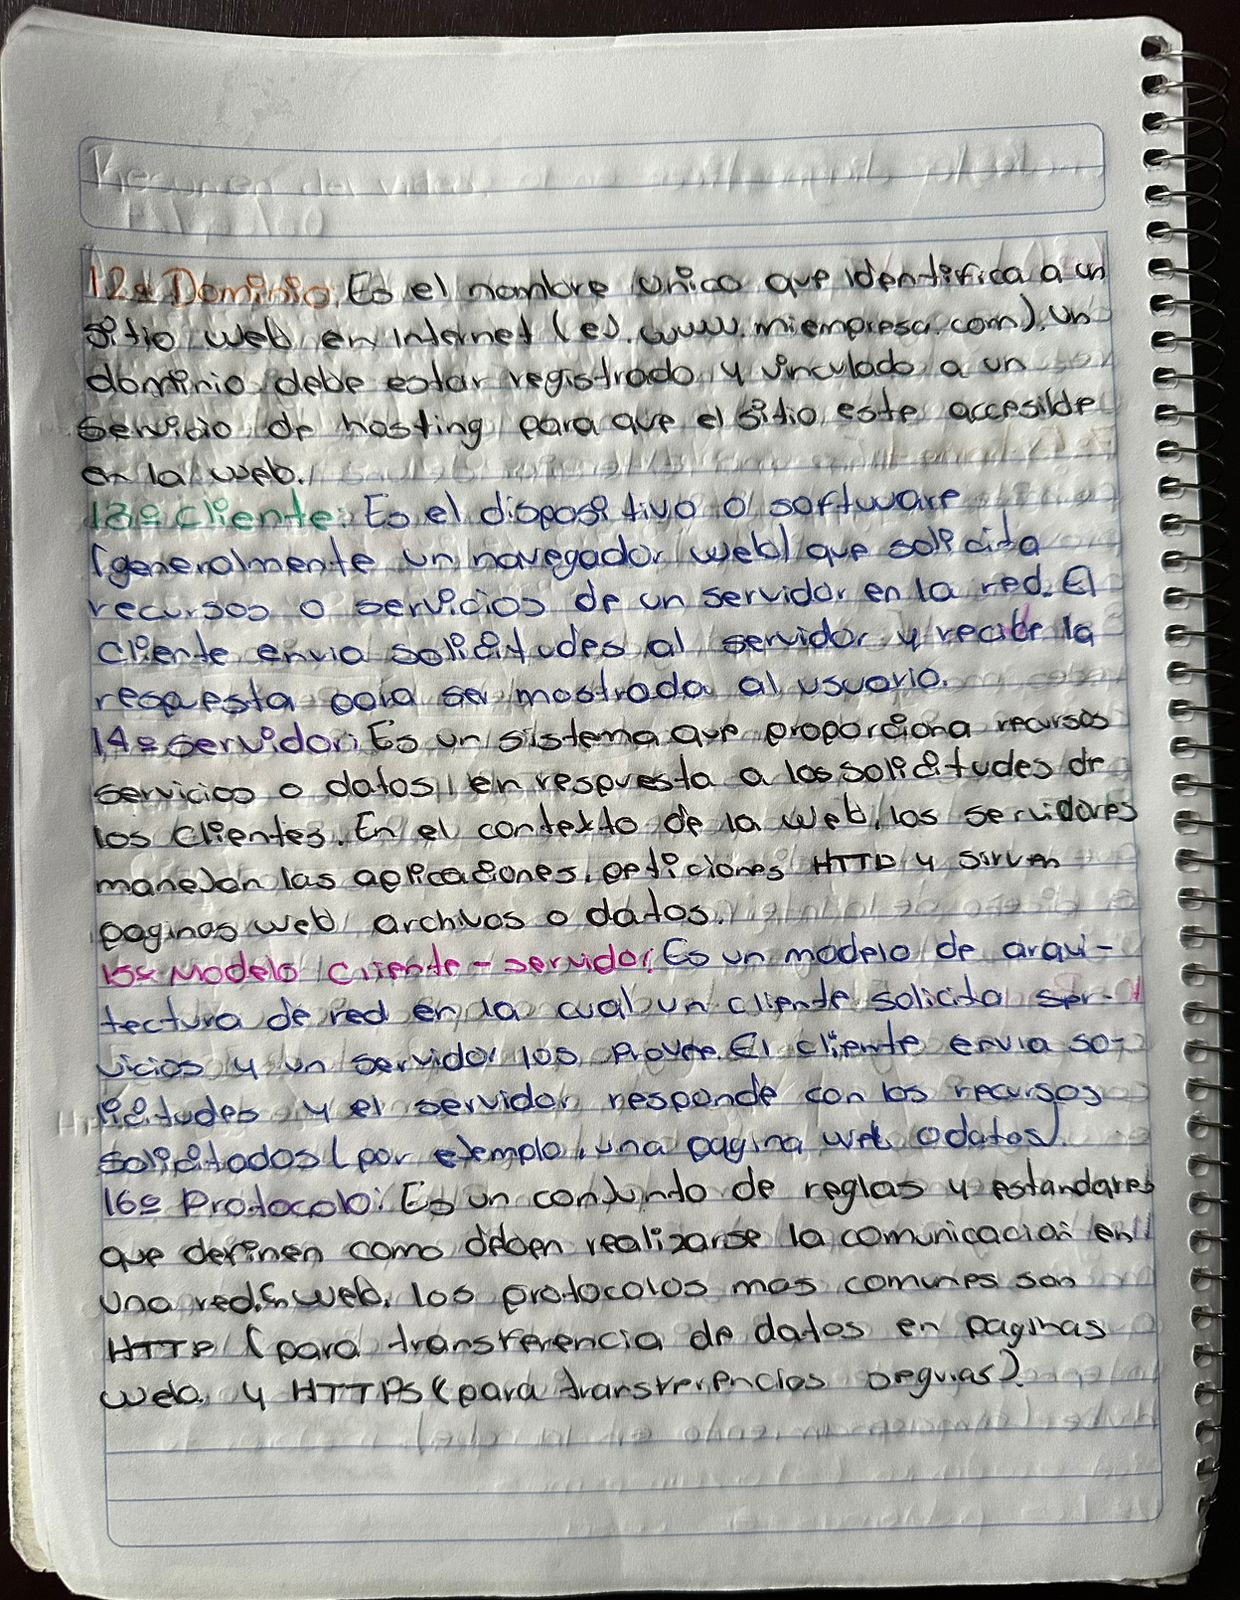 12º Dominio: Es el nombre unico que identifica a un
sitio web en internet (ej. www.miempresa.com). Un
dominio debe estar registrado y vinculado a un
servicio de hosting para que el sitio este accesible
en la web.
13º Cliente: Es el dispositivo o software
(generalmente un navegador web) que solicita
recursos o servicios de un servidor en la red. El
cliente envia solicitudes al servidor y recibe la
respuesta para ser mostrada al usuario.
14º servidor: Es un sistema que proporciona recursos
servicios o datos, en respuesta a las solicitudes de
los clientes. En el contexto de la web, los servidores
manejan las aplicaciones, peticiones HTTP y sirven
paginas web, archivos o datos.
15º Modelo cliente - servidor: Es un modelo de arqui-
tectura de red en la cual un cliente solicita ser-
vicios y un servidor los provee. El cliente envia so-
licitudes y el servidor responde con los recursos
solicitados (por ejemplo, una pagina web o datos).
16º Protocolo: Es un conjunto de reglas y estandares
que definen como deben realizarse la comunicación en
una red. En web, los protocolos mas comunes son
HTTP (para transferencia de datos en paginas
web. y HTTPS (para transferencias seguras).